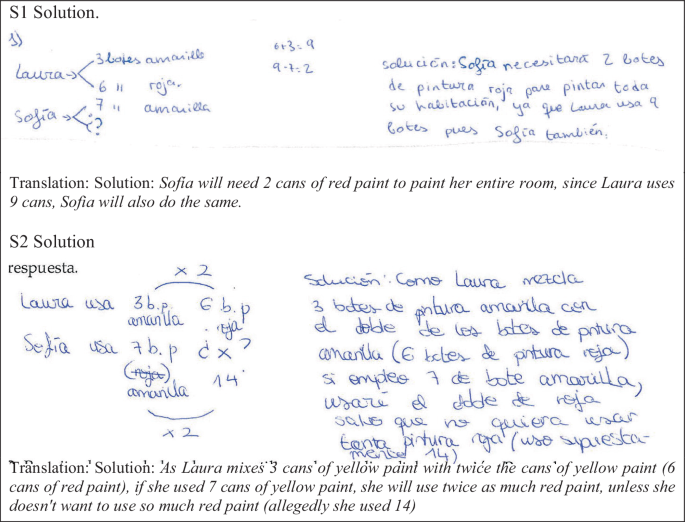 S1 Solution.
1)
Laura → 3 botes amarillo
6 " roja.
Sofía → 7 " amarilla
¿?
6+3=9
9-7=2
solución: Sofía necesitará 2 botes
de pintura roja para pintar toda
su habitación, ya que Laura usa 9
botes pues Sofía también.
Translation: Solution: Sofia will need 2 cans of red paint to paint her entire room, since Laura uses
9 cans, Sofia will also do the same.
S2 Solution
respuesta.
x 2
Laura usa 3 b.p amarilla 6 b.p roja
Sofía usa 7 b.p (roja) amarilla ¿x?
14
x 2
Solución: Como Laura mezcla
3 botes de pintura amarilla con
el doble de los botes de pintura
amarilla (6 botes de pintura roja)
si empleo 7 de bote amarilla,
usaré el doble de roja
salvo que no quiera usar
tanta pintura roja (uso supuesta-
mente 14)
Translation: Solution: As Laura mixes 3 cans of yellow paint with twice the cans of yellow paint (6
cans of red paint), if she used 7 cans of yellow paint, she will use twice as much red paint, unless she
doesn't want to use so much red paint (allegedly she used 14)